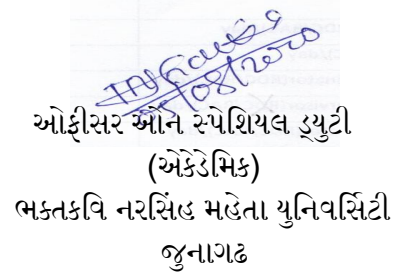 ઓફીસર ઓન સ્પેશિયલ ડ્યુટી
(એકેડેમિક)
ભક્તકવિ નરસિંહ મહેતા યુનિવર્સિટી
જુનાગઢ